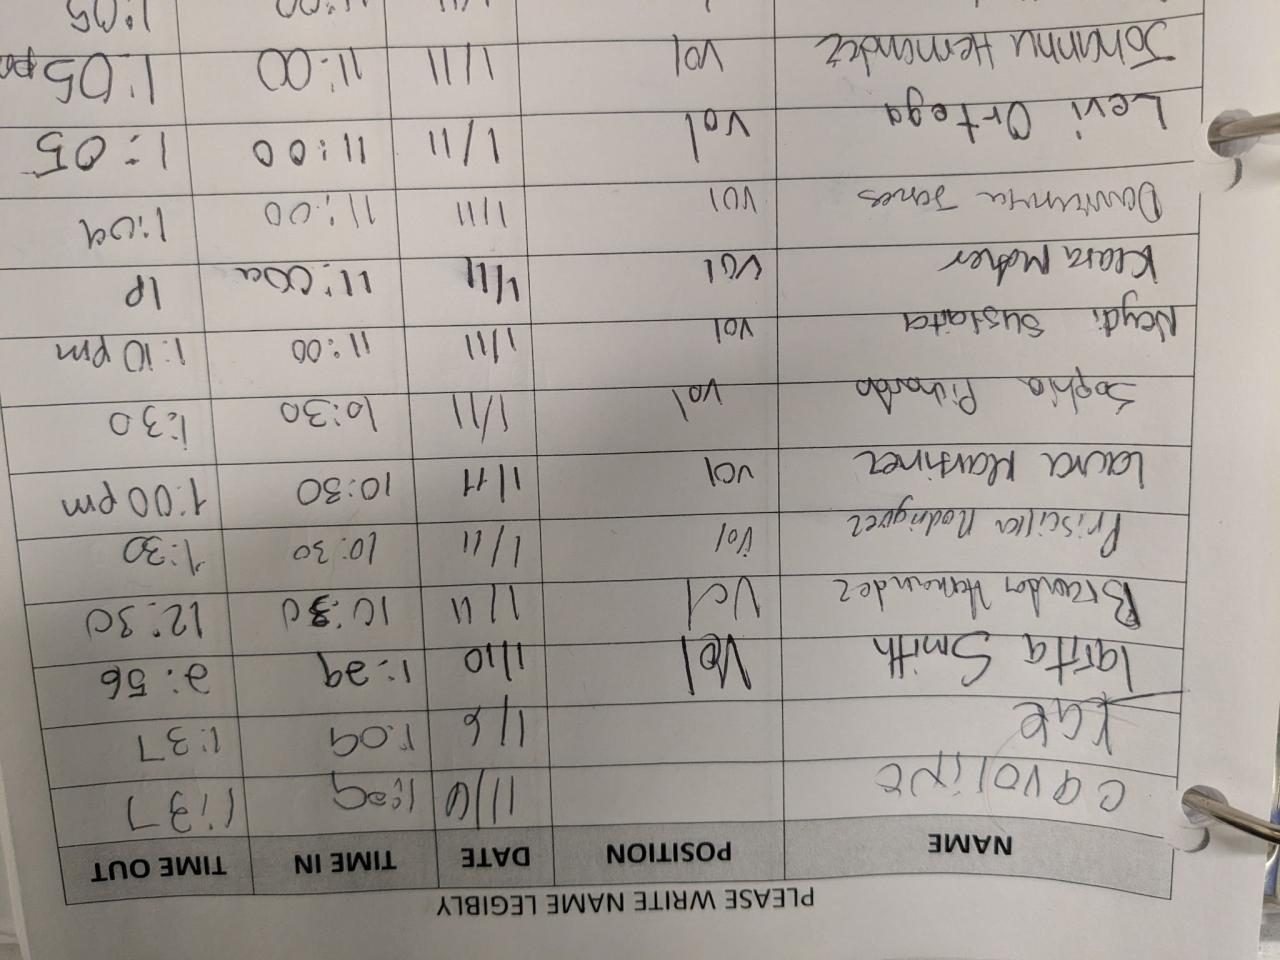 PLEASE WRITE NAME LEGIBLY
NAME POSITION DATE TIME IN TIME OUT
caroline 1:09 1:37
Kge 1/6 1:09 1:37
Smith Vol 1/10 1:29 2:56
Brandon Hernandez Vol 1/11 10:30 12:30
Priscilla Rodriguez Vol 1/11 10:30 1:30
Laura Martinez Vol 1/11 10:30 1:00 pm
Sophia Vol 1/11 10:30 1:30
Neydi Sustaita Vol 1/11 11:00 1:10 pm
Klara Maher Vol 1/11 11:00a 1P
Jones Vol 1/11 11:00 1:09
Levi Ortega Vol 1/11 11:00 1:05
Johanna Hernandez Vol 1/11 11:00 1:05
1:05